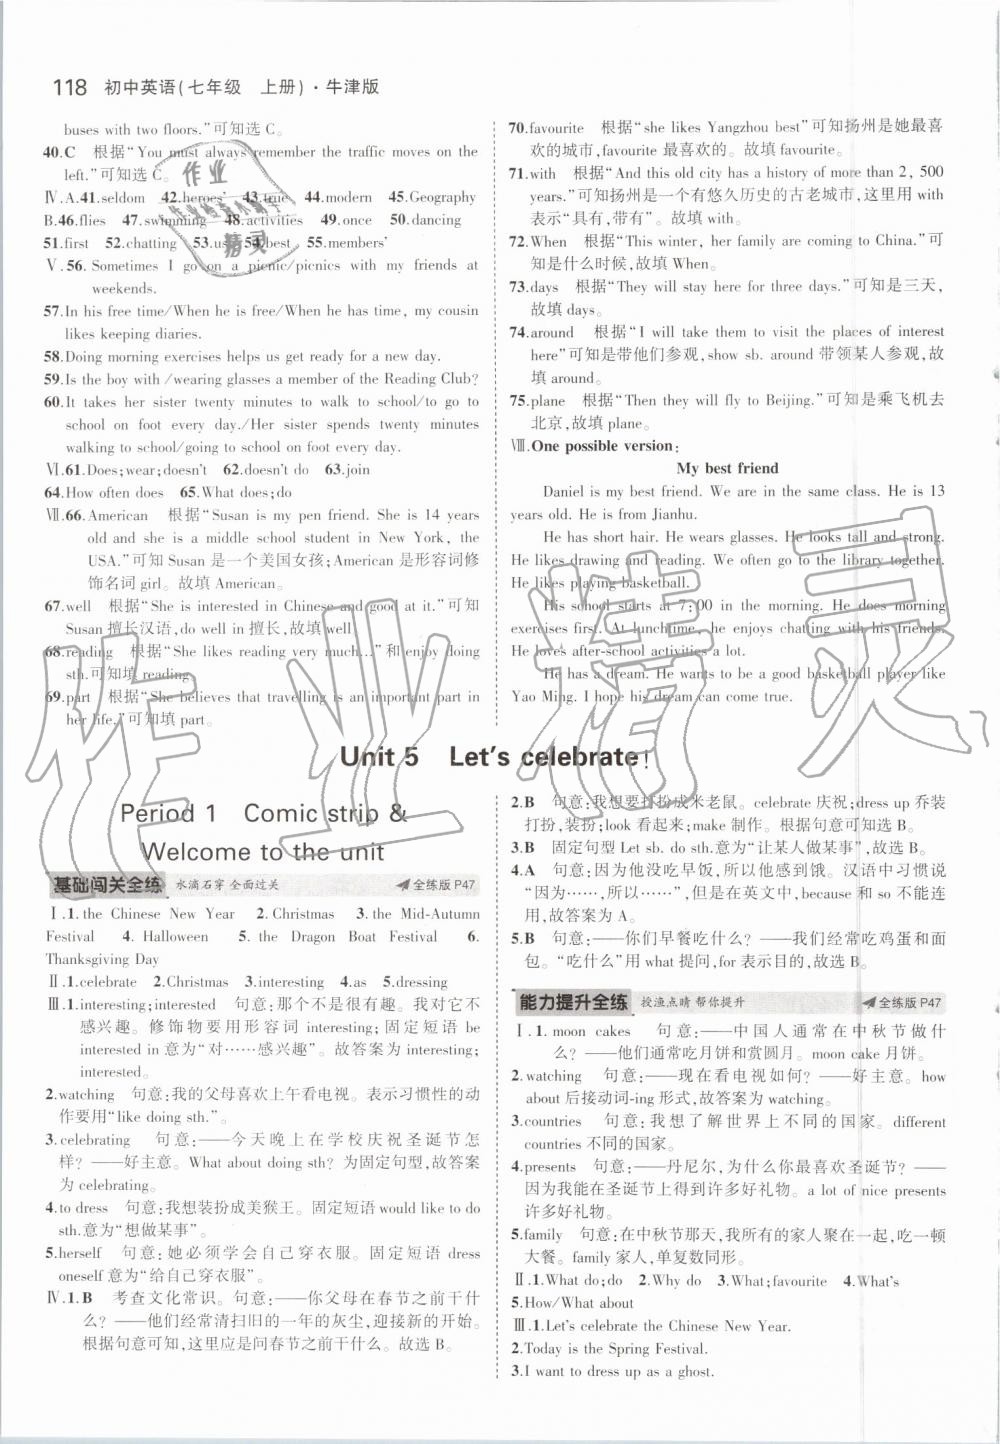 118 初中英语(七年级 上册)·牛津版
buses with two floors.”可知选C。
40.C 根据“You must always remember the traffic moves on the
left.”可知选C。
Ⅳ.A.41.seldom 42.heroes' 43.true 44.modern 45.Geography
B.46.flies 47.swimming 48.activities 49.once 50.dancing
51.first 52.chatting 53.us 54.best 55.members'
Ⅴ.56. Sometimes I go on a picnic/picnics with my friends at
weekends.
57.In his free time/When he is free/When he has time, my cousin
likes keeping diaries.
58.Doing morning exercises helps us get ready for a new day.
59.Is the boy with /wearing glasses a member of the Reading Club?
60.It takes her sister twenty minutes to walk to school/to go to
school on foot every day./Her sister spends twenty minutes
walking to school/going to school on foot every day.
Ⅵ.61.Does;wear;doesn't 62.doesn't do 63.join
64.How often does 65.What does;do
Ⅶ.66.American 根据“Susan is my pen friend. She is 14 years
old and she is a middle school student in New York, the
USA.”可知 Susan是一个美国女孩;American是形容词修
饰名词 girl。故填 American。
67.well 根据“She is interested in Chinese and good at it.”可知
Susan擅长汉语,do well in擅长,故填 well
68.reading 根据“She likes reading very much...”和enjoy doing
sth.可知填 reading
69.part 根据“She believes that travelling is an important part in
her life.”可知填 part。
70.favourite 根据“she likes Yangzhou best”可知扬州是她最喜
欢的城市,favourite 最喜欢的。故填 favourite。
71.with 根据“And this old city has a history of more than 2, 500
years.”可知扬州是一个有悠久历史的古老城市,这里用 with
表示“具有,带有”。故填 with。
72.When 根据“This winter, her family are coming to China.”可
知是什么时候,故填 When。
73.days 根据“They will stay here for three days.”可知是三天,
故填 days。
74.around 根据“I will take them to visit the places of interest
here”可知是带他们参观,show sb. around 带领某人参观,故
填 around。
75.plane 根据“Then they will fly to Beijing.”可知是乘飞机去
北京,故填 plane。
Ⅷ.One possible version:
My best friend
Daniel is my best friend. We are in the same class. He is 13
years old. He is from Jianhu.
He has short hair. He wears glasses. He looks tall and strong.
He likes drawing and reading. We often go to the library together.
He likes playing basketball.
His school starts at 7:00 in the morning. He does morning
exercises first. At lunchtime, he enjoys chatting with his friends.
He loves after-school activities a lot.
He has a dream. He wants to be a good basketball player like
Yao Ming. I hope his dream can come true.
Unit 5 Let's celebrate!
Period 1 Comic strip &
Welcome to the unit
基础闯关全练 水滴石穿 全面过关 全练版 P47
Ⅰ.1. the Chinese New Year 2. Christmas 3. the Mid-Autumn
Festival 4. Halloween 5. the Dragon Boat Festival 6.
Thanksgiving Day
Ⅱ.1.celebrate 2.Christmas 3.interesting 4.as 5.dressing
Ⅲ.1.interesting;interested 句意:那个不是很有趣。我对它不
感兴趣。修饰物要用形容词 interesting; 固定短语 be
interested in意为“对……感兴趣”。故答案为 interesting;
interested。
2.watching 句意:我的父母喜欢上午看电视。表示习惯性的动
作要用“like doing sth.”。
3.celebrating 句意:——今天晚上在学校庆祝圣诞节怎
样? ——好主意。What about doing sth? 为固定句型,故答案
为 celebrating。
4.to dress 句意:我想装扮成美猴王。固定短语would like to do
sth.意为“想做某事”。
5.herself 句意:她必须学会自己穿衣服。固定短语 dress
oneself 意为“给自己穿衣服”。
Ⅳ.1.B 考查文化常识。句意:——你父母在春节之前干什
么? ——他们经常清扫旧的一年的灰尘,迎接新的开始。
根据句意可知,这里应是问春节之前干什么。故选 B。
2.B 句意:我想要打扮成米老鼠。celebrate 庆祝;dress up 乔装
打扮,装扮;look 看起来;make 制作。根据句意可选 B。
3.B 固定句型 Let sb. do sth.意为“让某人做某事”。
4.A 句意:因为他没吃早饭,所以他感到饿。汉语中习惯说
“因为……,所以……”,但是在英文中,because 和 so 不能连
用,故答案为 A。
5.B 句意:——你们早餐吃什么? ——我们经常吃鸡蛋和面
包。“吃什么”用 what 提问,for 表示目的。故答案为 B。
能力提升全练 授渔点睛 帮你提升 全练版 P47
Ⅰ.1. moon cakes 句意:——中国人通常在中秋节做什
么? ——他们通常吃月饼和赏圆月。moon cake 月饼。
2.watching 句意:——现在看电视如何? ——好主意。how
about 后接动词-ing 形式,故答案为 watching。
3.countries 句意:我想了解世界上不同的国家。different
countries 不同的国家。
4.presents 句意:——丹尼尔,为什么你最喜欢圣诞节? ——
因为我能在圣诞节上得到许多好礼物。a lot of nice presents
许多好礼物。
5.family 句意:在中秋节那天,我所有的家人聚在一起,吃一顿
大餐。family 家人,单复数同形。
Ⅱ.1.What do;do 2.Why do 3.What;favourite 4.What's
5.How/What about
Ⅲ.1.Let's celebrate the Chinese New Year.
2.Today is the Spring Festival.
3.I want to dress up as a ghost.
作业精灵